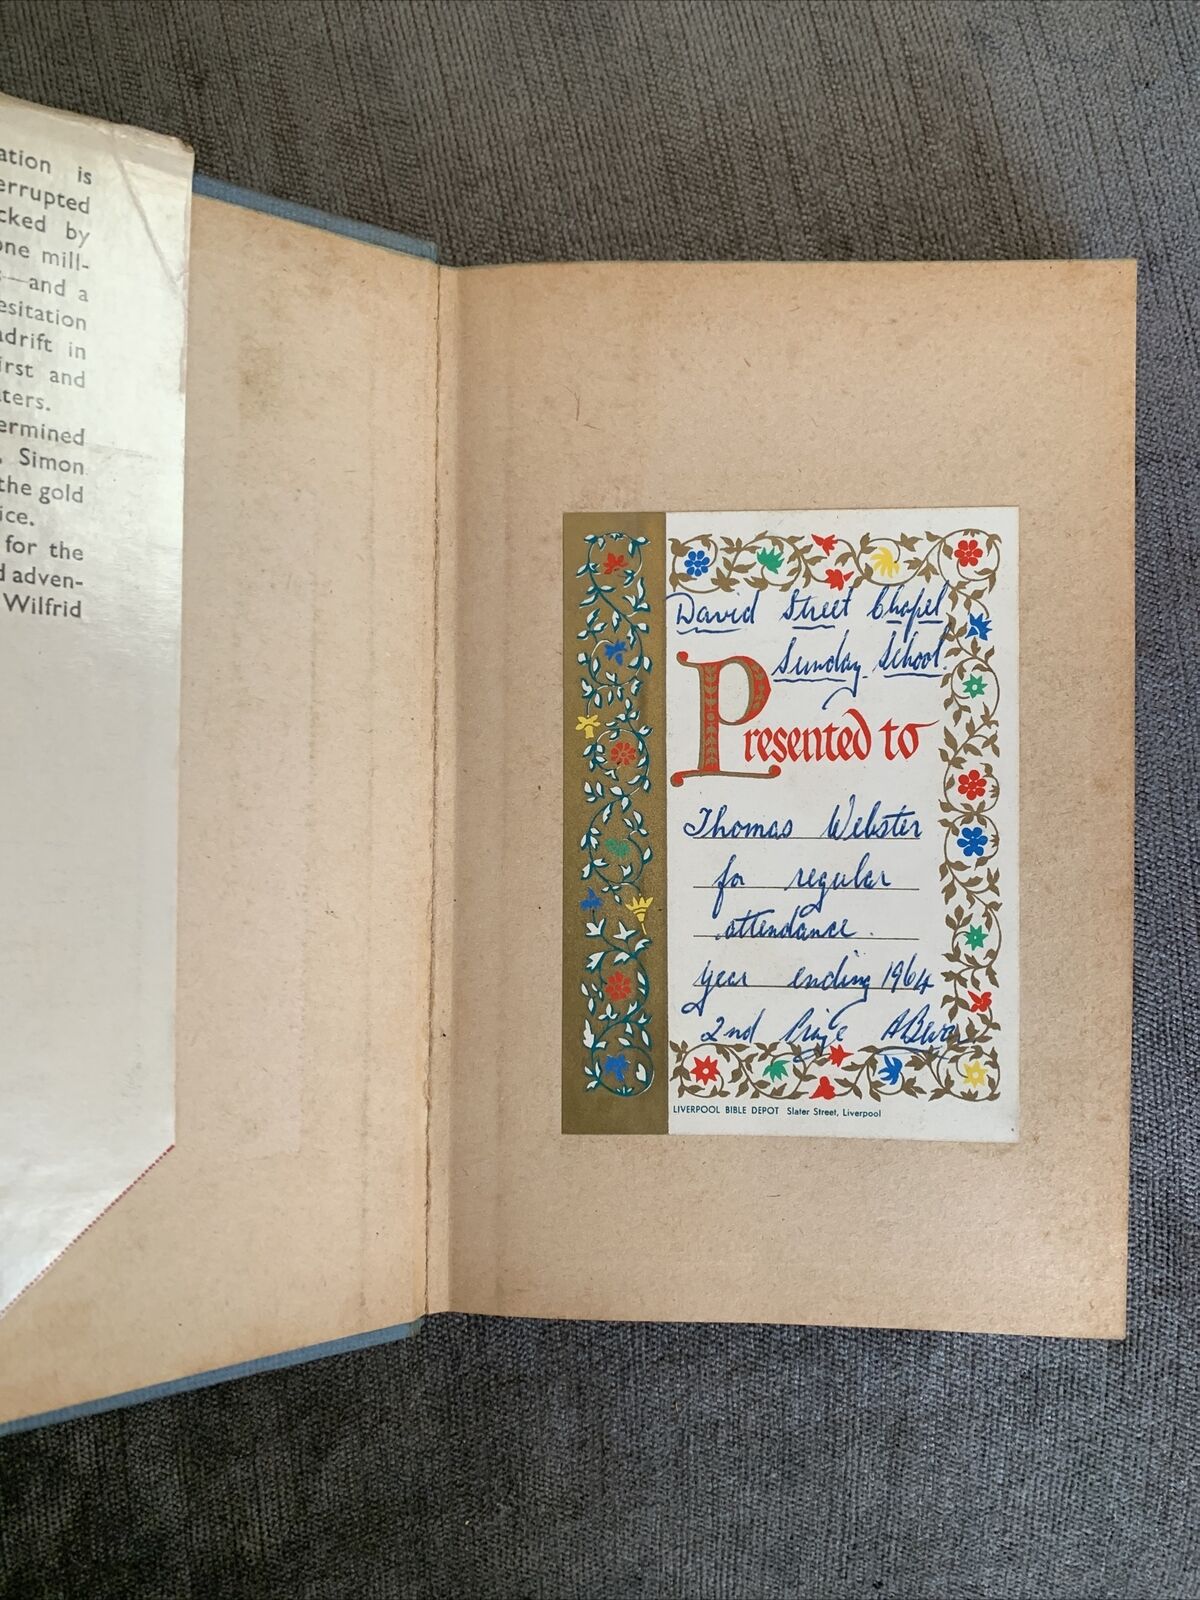 ation is
errupted
cked by
one mill-
s—and a
esitation
adrift in
irst and
ters.
ermined
, Simon
the gold
ice.
for the
d adven-
Wilfrid
David Street Chapel
Sunday School.
Presented to
Thomas Webster
for regular
attendance.
year ending 1964
2nd Prize
LIVERPOOL BIBLE DEPOT Slater Street, Liverpool